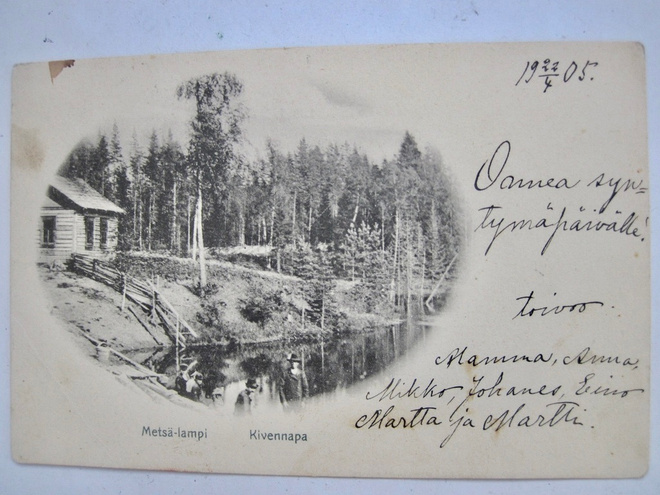 19 22/4 05.
Onnea syn=
tymäpäivälle!
toivoo
Mamma, Anna,
Mikko, Johanes, Eino
Martta ja Martti.
Metsä-lampi Kivennapa